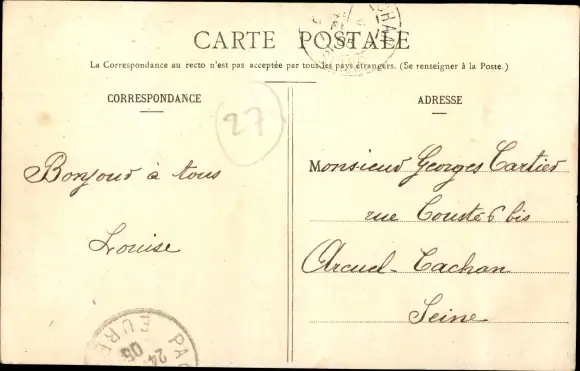 CARTE POSTALE
La Correspondance au recto n'est pas acceptée par tous les pays étrangers. (Se renseigner à la Poste.)
CORRESPONDANCE
27
Bonjour à tous
Louise
ADRESSE
Monsieur Georges Cartier
rue 6 bis
Arcueil-Cachan
Seine
PAC
EURE
24
05